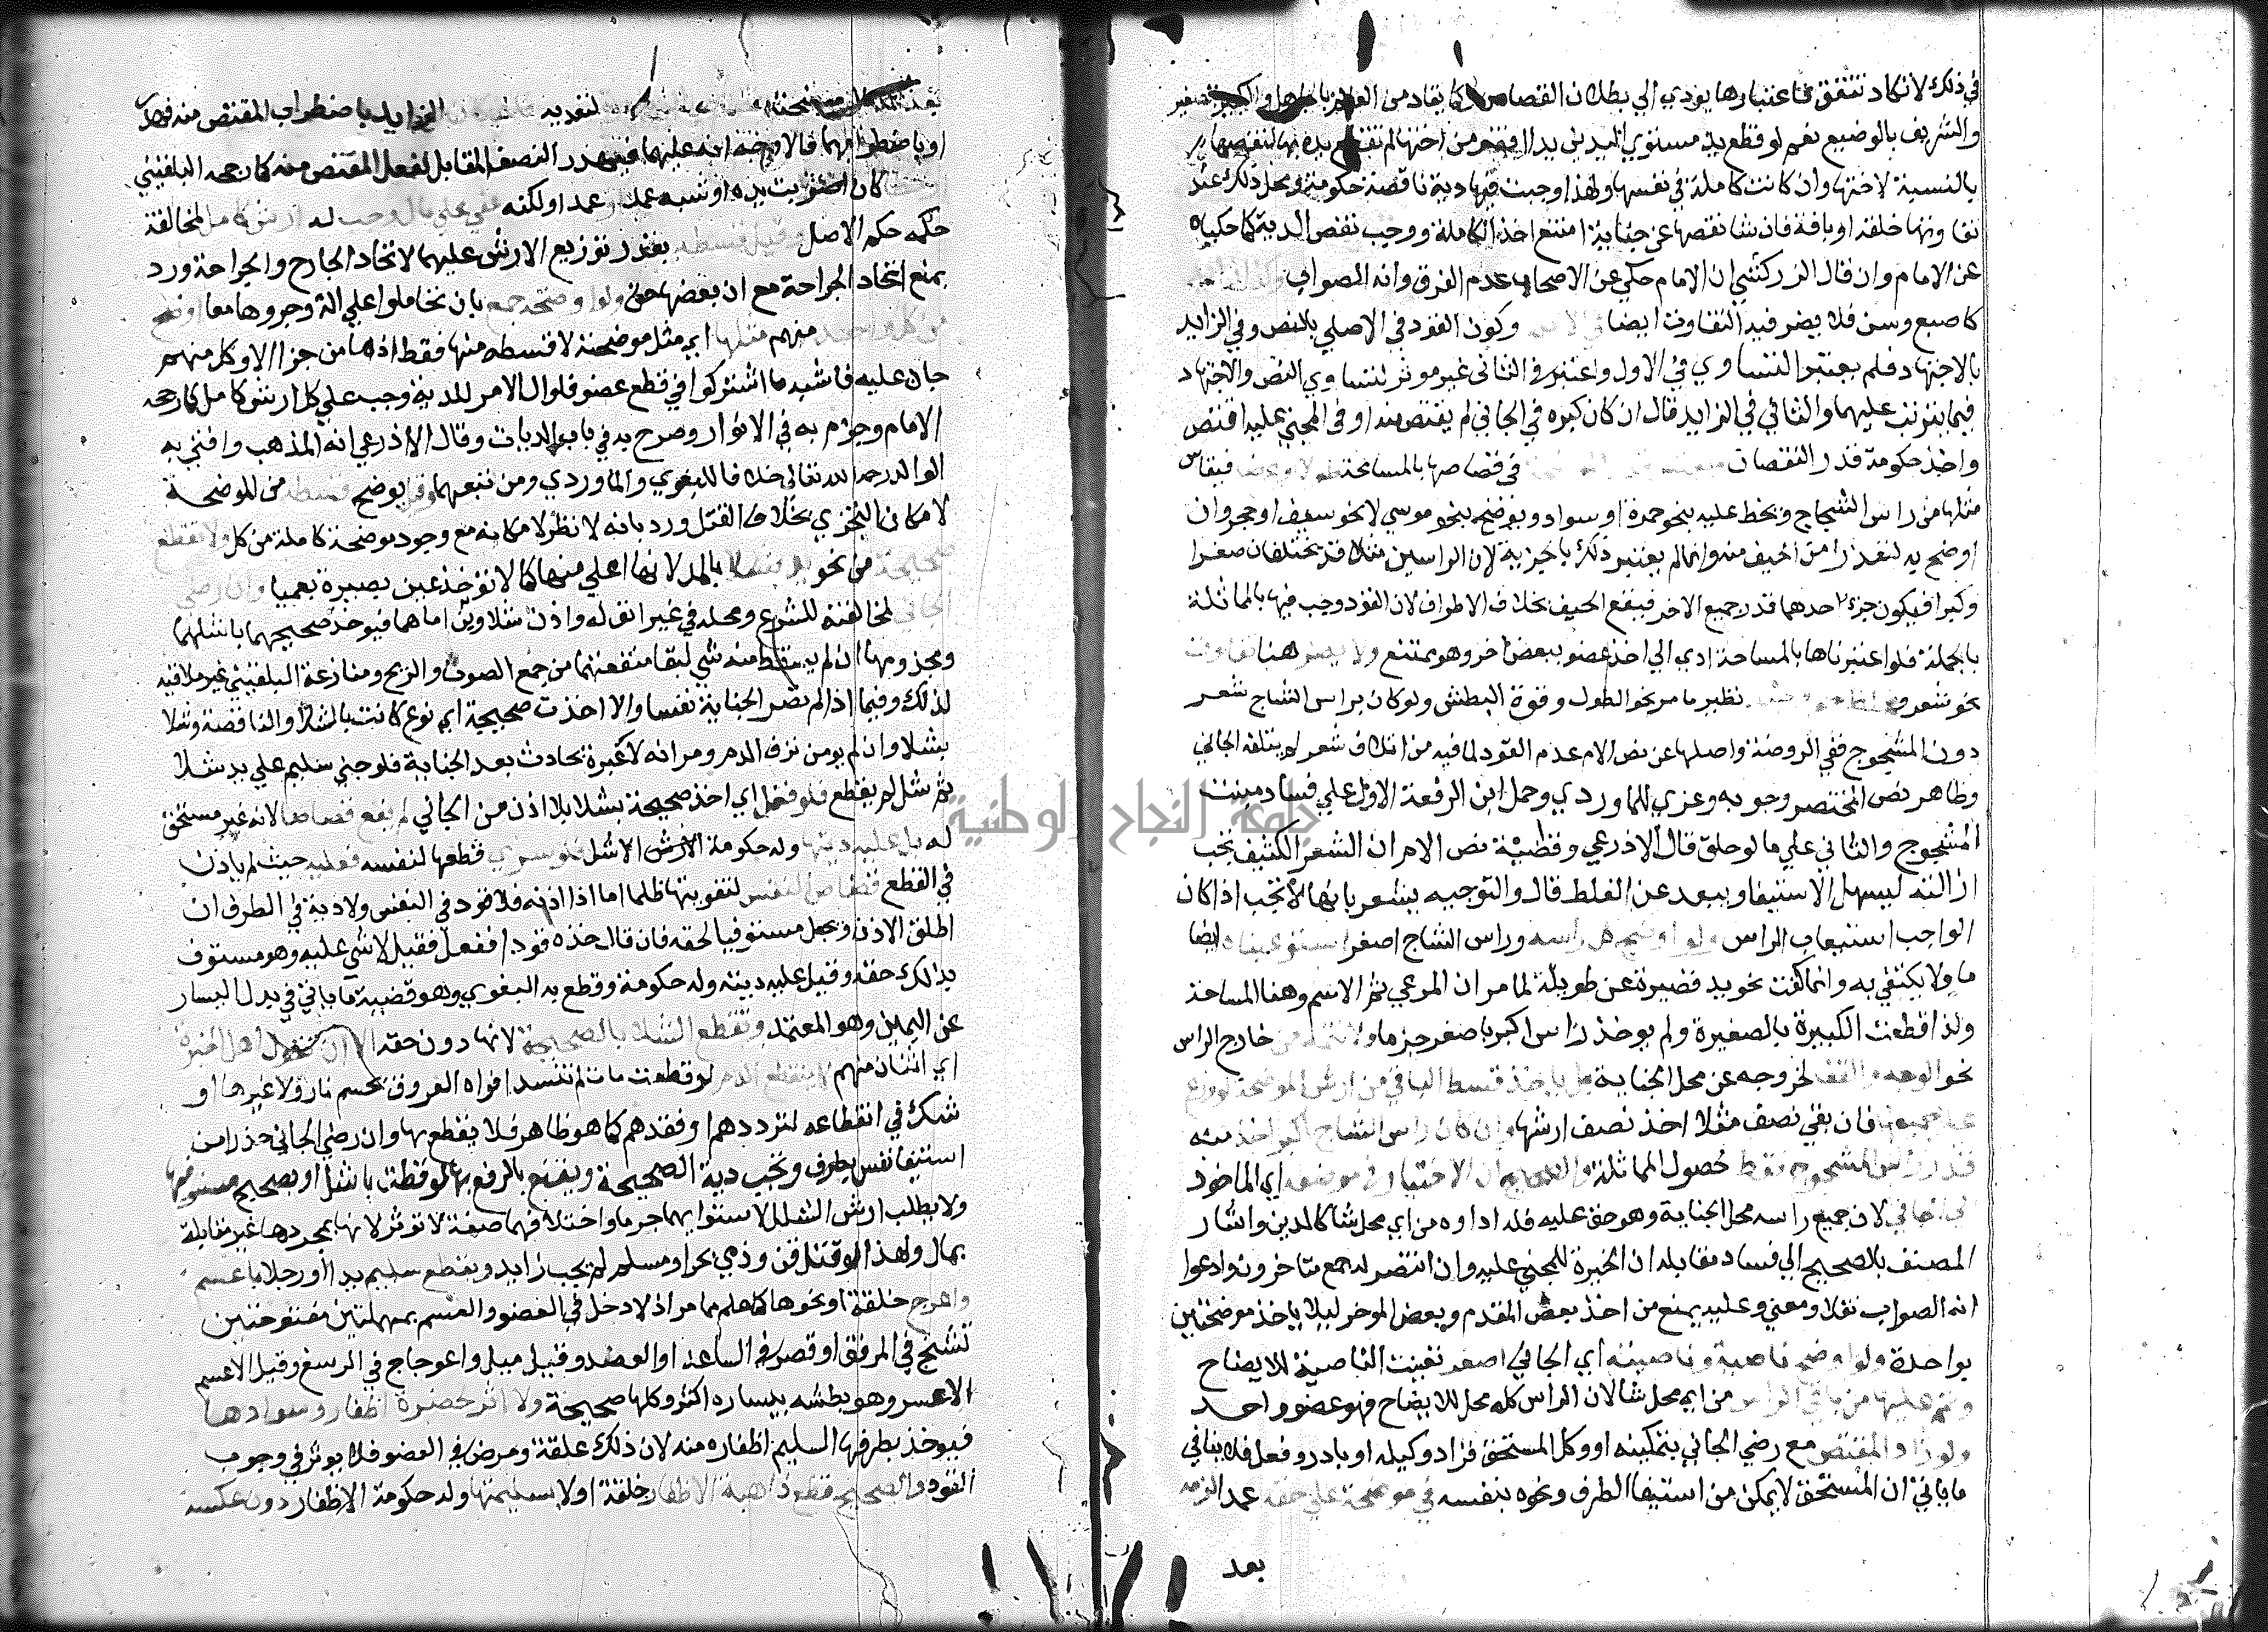 في ذلك لا تكاد تتفق فاعتبارها يؤدي الي بطلان القصاص كما يقاد من العالم بالجاهل والكبير بالصغير
والشريف بالوضيع نعم لو قطع يد مستوي اليدين يدا اقصر من اختها لم تقطع يده بها لنقصها
بالنسبة لاختها وان كانت كاملة في نفسها ولهذا وجبت فيها دية ناقصة حكومة ومحل ذلك عند
تفاوتهما خلقة او بافة فان نشا نقصها عن جناية امتنع اخذ الكاملة ووجب نقص الدية كما حكياه
عن الامام وان قال الزركشي ان الامام حكي عن الاصحاب عدم الفرق وانه الصواب
كاصبع وسن فلا يضر فيه التفاوت ايضا وكون القود في الاصلي بالنص وفي الزايد
بالاجتهاد فلم يعتبر التساوي في الاول واعتبر في الثاني غير موثر لتساوي النص والاجتهاد
فيما يترتب عليهما والثاني في الزايد قال ان كان كبره في الجاني لم يقتص منه او في المجني عليه اقتص
واخذ حكومة قدر النقصان في قصاصها بالمساحة طولا وعرضا فيقاس
مثلها من راس الشجاج ويخط عليه بنحو حمرة او سواد ويوضح بنحو موسي لا نحو سيف او حجر وان
اوضح به لتعذر امن الحيف منه وانما لم يعتبر ذلك بالجزية لان الراسين مثلا قد يختلفان صغرا
وكبرا فيكون جزء احدهما قدر جميع الاخر فيقع الحيف بخلاف الاطراف لان القود وجب فيها بالمماثلة
بالجملة فلو اعتبرناها بالمساحة ادي الي اخذ عضو ببعض اخر وهو ممتنع ولا يضر هنا تفاوت
نحو شعر و نظير ما مر نحو الطول وقوة البطش ولو كان براس الشاج شعر
دون المشجوج ففي الروضة واصلها عن نص الام عدم القود لما فيه من اتلاف شعر لم يتلفه الجاني
وظاهر نص المختصر وجوبه وعزي للماوردي وحمل ابن الرفعة الاول علي فساد منبت
المشجوج والثاني علي ما لو حلق قال الاذرعي وقضية نص الام ان الشعر الكثيف تجب
ازالته ليسهل الاستيفا ويبعد عن الغلط قال والتوجيه يشعر بانها لا تجب اذا كان
الواجب استيعاب الراس ولو اوضح كل راسه وراس الشاج اصغر استوعبناه ايضا
ما ولا يكتفي به وانما كفت نحو يد قصيرة عن طويلة لما مر ان المرعي ثم الاسم وهنا المساحة
ولذا قطعت الكبيرة بالصغيرة ولم يوخذ راس اكبر باصغر جزما ولا نتمه من خارج الراس
نحو الوجه والقفا لخروجه عن محل الجناية بل ياخذ قسط الباقي من ارش الموضحة لو وزع
علي جميعها فان بقي نصف مثلا اخذ نصف ارشها وان كان راس الشاج اكبر اخذ منه
قدر راس المشجوج فقط حصول المماثلة والصحيح ان الاختيار في موضعه اي الماخوذ
الي الجاني لان جميع راسه محل الجناية وهو حق عليه فله اداوه من اي محل شا كالدين واشار
المصنف بالصحيح الي فساد مقابله ان الخيرة للمجني عليه وان انتصر له جمع متاخرون وادعوا
انه الصواب نقلا ومعني وعليه يمنع من اخذ بعض المقدم وبعض الموخر ليلا ياخذ موضحتين
بواحدة ولو اوضح ناصية وناصيته اي الجاني اصغر تعينت الناصية للايضاح
وتمم عليها من باقي الراس من اي محل شا لان الراس كله محل للايضاح فهو عضو واحد
ولو زاد المقتص مع رضي الجاني بتمكينه او وكل المستحق فزاد وكيله او بادر وفعل فلا ينافي
ما ياتي ان المستحق لا يمكن من استيفا الطرف ونحوه بنفسه في موضحة علي حقه عمدا لزمه
بعد
لتعديه الزايد باضطراب المقتص منه فهدر
او باضطرابهما فالاوجه انه عليهما فيهدر النصف المقابل لفعل المقتص منه كما رجحه البلقيني
كان اضطربت يده او شبه عمد او عمدا ولكنه عفي علي مال وجب له ارش كامل لمخالفة
حكمه حكم الاصل وقيل قسطه بعد توزيع الارش عليهما لاتحاد الجارح والجراحة ورد
بمنع اتحاد الجراحة مع ان بعضها حق ولو اوضحه جمع بان تحاملوا علي الة وجروها معا اوضح
من كل واحد منهم مثلها اي مثل موضحته لا قسطه منها فقط اذ ما من جزء الا وكل منهم
جان عليه فاشبه ما اشتركوا في قطع عضو فلو ال الامر للدية وجب علي كل ارش كامل كما رجحه
الامام وجزم به في الانوار وصرح به في باب الديات وقال الاذرعي انه المذهب وافتي به
الوالد رحمه الله تعالي خلافا للبغوي والماوردي ومن تبعهما وقيل يوضح قسطه من الموضحة
لامكان التجزي بخلاف القتل ورد بانه لا نظر لامكانه مع وجود موضحة كاملة من كل ولا تقطع
صحيحة من نحو يد بشلا بالمد لانها اعلي منها كما لا توخذ عين بصيرة بعميا وان رضي
الجاني لمخالفته للشرع ومحله في غير انف له واذن شلاوين اما هما فيوخذ صحيحهما باشلهما
ومجذومها ان لم يسقط منه شي لبقا منفعتهما من جمع الصوت والريح ومنازعة البلقيني غير ملاقية
لذلك وفيما اذا لم تصر الجناية نفسا والا اخذت صحيحة اي نوع كانت بالشلا والناقصة وشلا
بشلا وان لم يومن نزف الدم ومر انه لا عبرة بحادث بعد الجناية فلو جني سليم علي يد شلا
ثم شل لم يقطع فلو فعل اي اخذ صحيحة بشلا بلا اذن من الجاني لم يقع قصاصا لانه غير مستحق
له بل عليه ديتها وله حكومة الاشل فلو سري قطعها لنفسه فعليه حيث لم ياذن
في القطع قصاص النفس لتفويتها ظلما اما اذا اذن فلا قود في النفس ولا دية في الطرف ان
اطلق الاذن ويجعل مستوفيا لحقه فان قال خذه قودا ففعل فقيل لا شي عليه وهو مستوف
بذلك حقه وقيل عليه ديته وله حكومة وقطع به البغوي وهو قضية ما ياتي في بدل اليسار
عن اليمين وهو المعتمد وتقطع الشلا بالصحيحة لانها دون حقه الا ان يقول اهل الخبرة
اي اثنان منهم لا ينقطع الدم لو قطعت مات لم تنسد افواه العروق بحسم نار ولا غيرها او
شك في انقطاعه لترددهم او فقدهم كما هو ظاهر فلا يقطع بها وان رضي الجاني حذرا من
استيفا نفس بطرف وتجب دية الصحيحة ويقنع بالرفع بها لو قطعت باشل او بصحيح مستوفيها
ولا يطلب ارش الشلل لاستوايهما جرما واختلافهما صفة لا توثر لانها بمجردها غير مقابلة
بمال ولهذا لو قتل قن وذمي بحر او مسلم لم يجب زايد ويقطع سليم يدا او رجلا باعسم
واعرج خلقة او نحوها كما علم مما مر اذ لا دخل في العضو والعسم بمهملتين مفتوحتين
تشنج في المرفق او قصر في الساعد او العضد وقيل ميل واعوجاج في الرسغ وقيل الاعسم
الاعسر وهو بطشه بيساره اكثر وكلها صحيحة ولا اثر خضرة اظفار وسوادها
فيوخذ بطرفها السليم اظفاره منه لان ذلك علقة ومرض في العضو فلا يوثر في وجوب
القود والصحيح قطع ذاهبة الاظفار خلقة او لا بسليمتها وله حكومة الاظفار دون عكسه
جامعة النجاح الوطنية